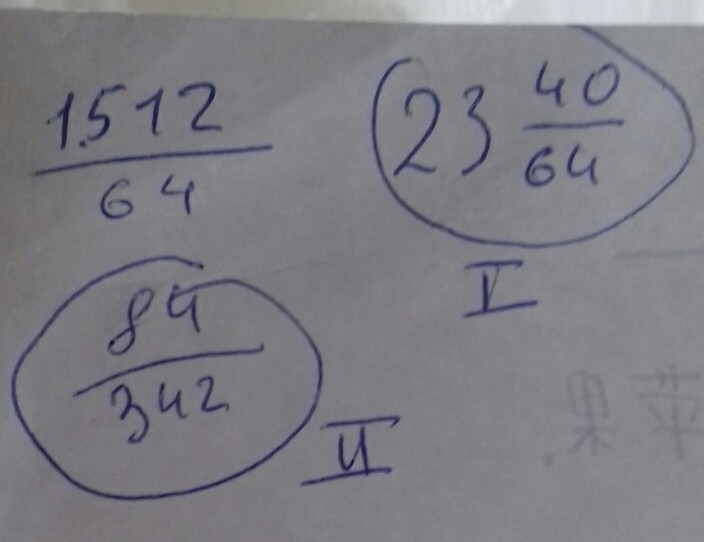 1512
64
23 40/64
I
84
342
II
苹果